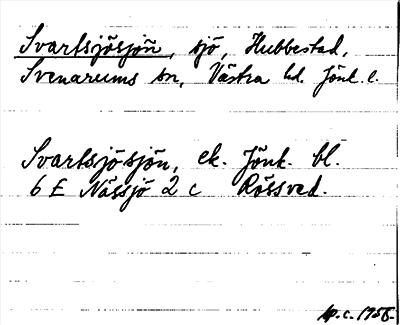 Svartsjösjön, sjö, Hubbestad,
Svenarums sn, Västra hd. Jönk. l.
Svartsjösjön, ek. Jönk. bl.
6 E Nässjö 2 c Rössved.
1958.